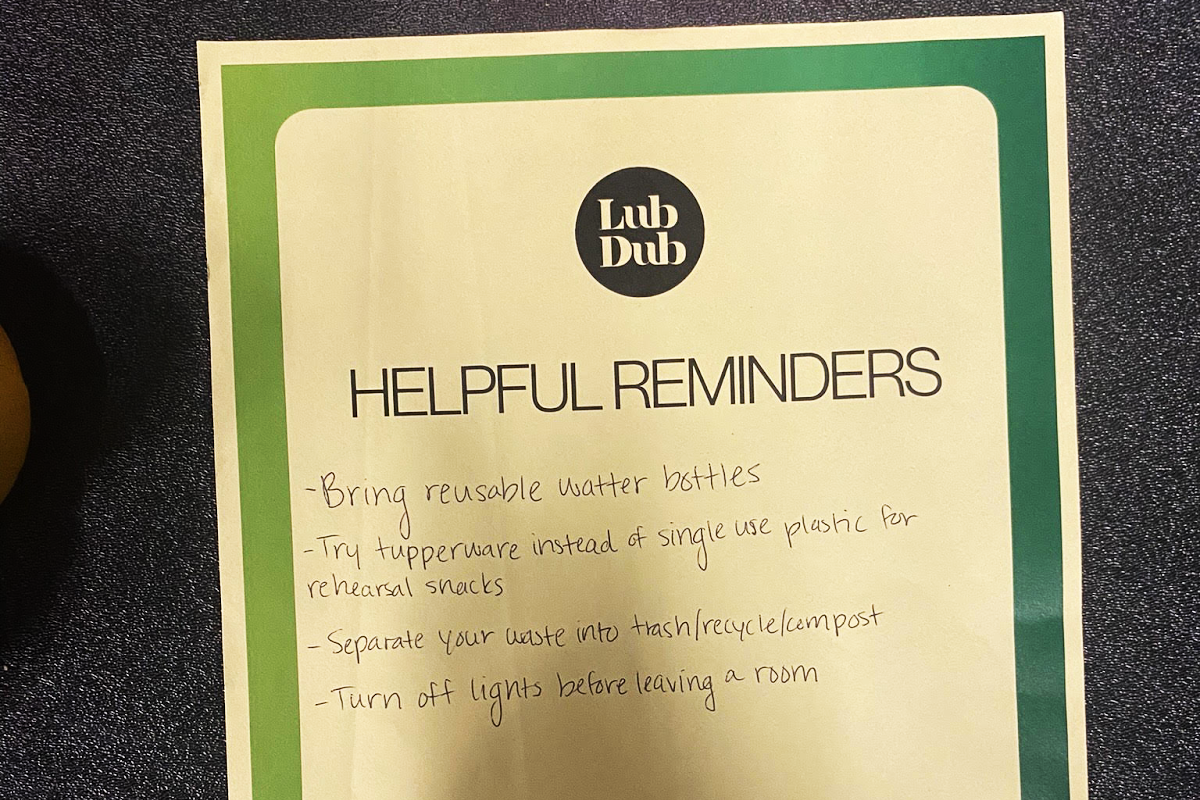 Lub
Dub
HELPFUL REMINDERS
-Bring reusable watter bottles
-Try tupperware instead of single use plastic for
rehearsal snacks
- Separate your waste into trash/recycle/compost
-Turn off lights before leaving a room